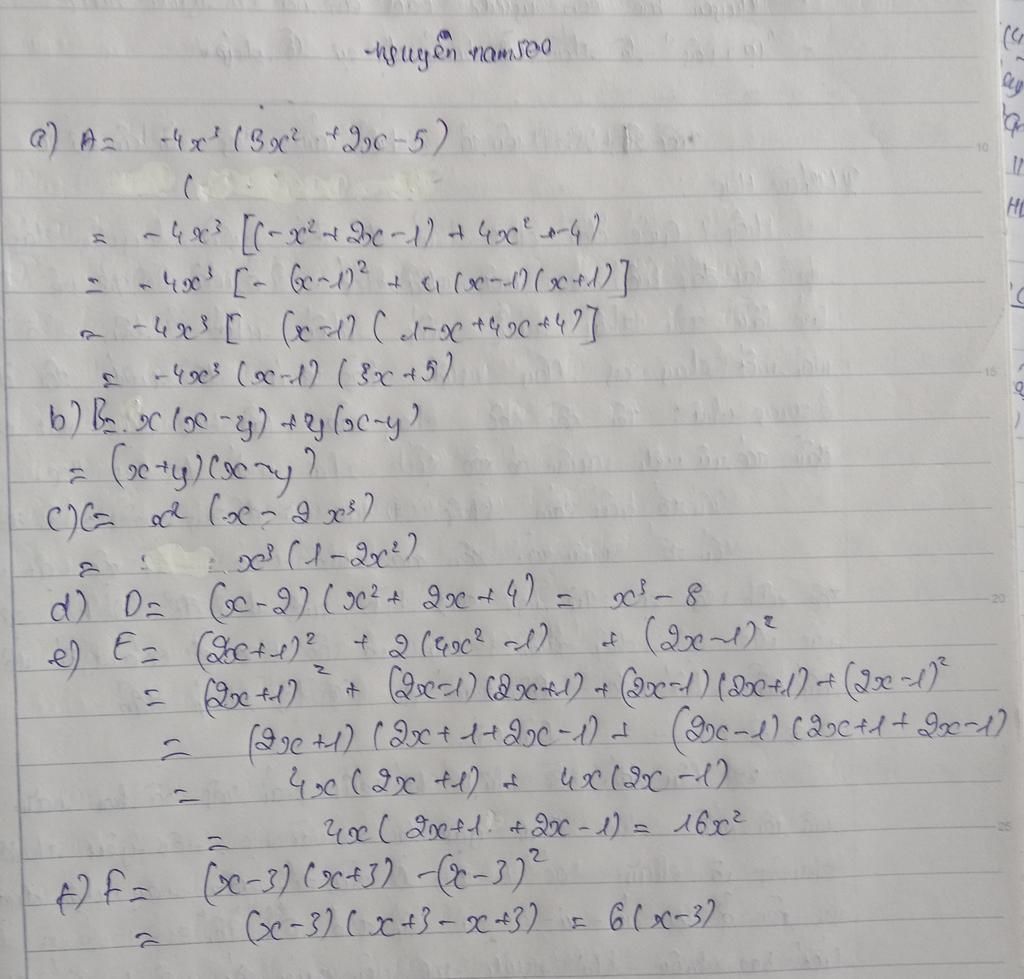 nguyễn nam500
a) A = -4x³ (3x² + 2x - 5)
(
= -4x³ [(-x² + 2x - 1) + 4x² + -4)
= -4x³ [- (x-1)² + 4 (x-1)(x+1)]
= -4x³ [ (x-1) ( 1-x+4x+4)]
= -4x³ (x-1) (3x+5)
b) B = x(x-y) + y(x-y)
= (x+y)(x-y)
c) C = x² (x - 2x³)
= x³ (1 - 2x²)
d) D = (x-2) (x² + 2x + 4) = x³ - 8
e) E = (2x+1)² + 2(4x² - 1) + (2x-1)²
= (2x+1)² + (2x-1)(2x+1) + (2x-1)(2x+1) + (2x-1)²
= (2x+1) (2x+1+2x-1) + (2x-1)(2x+1+2x-1)
= 4x(2x+1) + 4x(2x-1)
= 4x(2x+1+2x-1) = 16x²
f) F = (x-3)(x+3) - (x-3)²
= (x-3) (x+3-x+3) = 6(x-3)